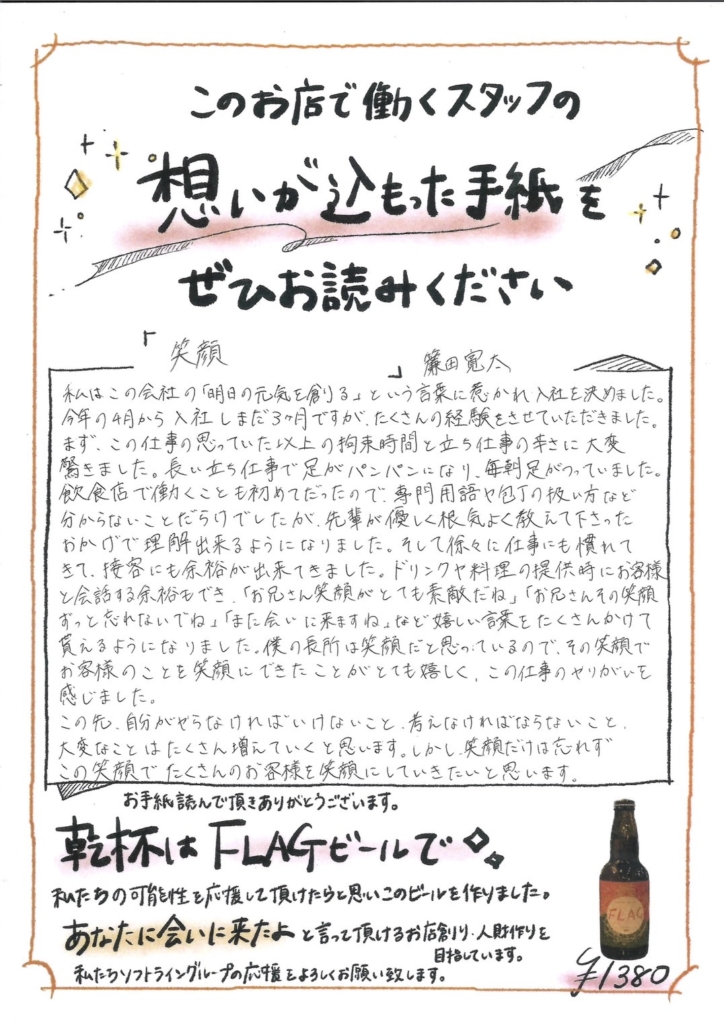 このお店で働くスタッフの
想いが込もった手紙を
ぜひお読みください
「笑顔」 簾田寛太
私はこの会社の「明日の元気を創りる」という言葉に惹かれ入社を決めました。
今年の4月から入社しまだ3ヶ月ですが、たくさんの経験をさせていただきました。
まず、この仕事の思っていた以上の拘束時間と立ち仕事の辛さに大変
驚きました。長い立ち仕事で足がパンパンになり、毎朝足がつっていました。
飲食店で働くことも初めてだったので、専門用語や包丁の扱い方など
分からないことだらけでしたが、先輩が優しく根気よく教えて下さった
おかげで理解出来るようになりました。そして徐々に仕事にも慣れて
きて、接客にも余裕が出来てきました。ドリンクや料理の提供時にお客様
と会話する余裕もでき、「お兄さん笑顔がとても素敵だね」「お兄さんその笑顔
ずっと忘れないでね」「また会いに来ますね」など嬉しい言葉をたくさんかけて
貰えるようになりました。僕の長所は笑顔だと思っているので、その笑顔で
お客様のことを笑顔にできたことがとても嬉しく、この仕事のやりがいを
感じました。
この先、自分がやらなければいけないこと、考えなければならないこと、
大変なことはたくさん増えていくと思います。しかし、笑顔だけは忘れず
この笑顔でたくさんのお客様を笑顔にしていきたいと思います。
お手紙読んで頂きありがとうございます。
乾杯はFLAGビールで
私たちの可能性を応援して頂けたらと思いこのビールを作りました。
あなたに会いに来たよと言って頂けるお店創り・人財作りを
目指しています。
私たちソフトライングループの応援をよろしくお願い致します。
FLAG
¥1380